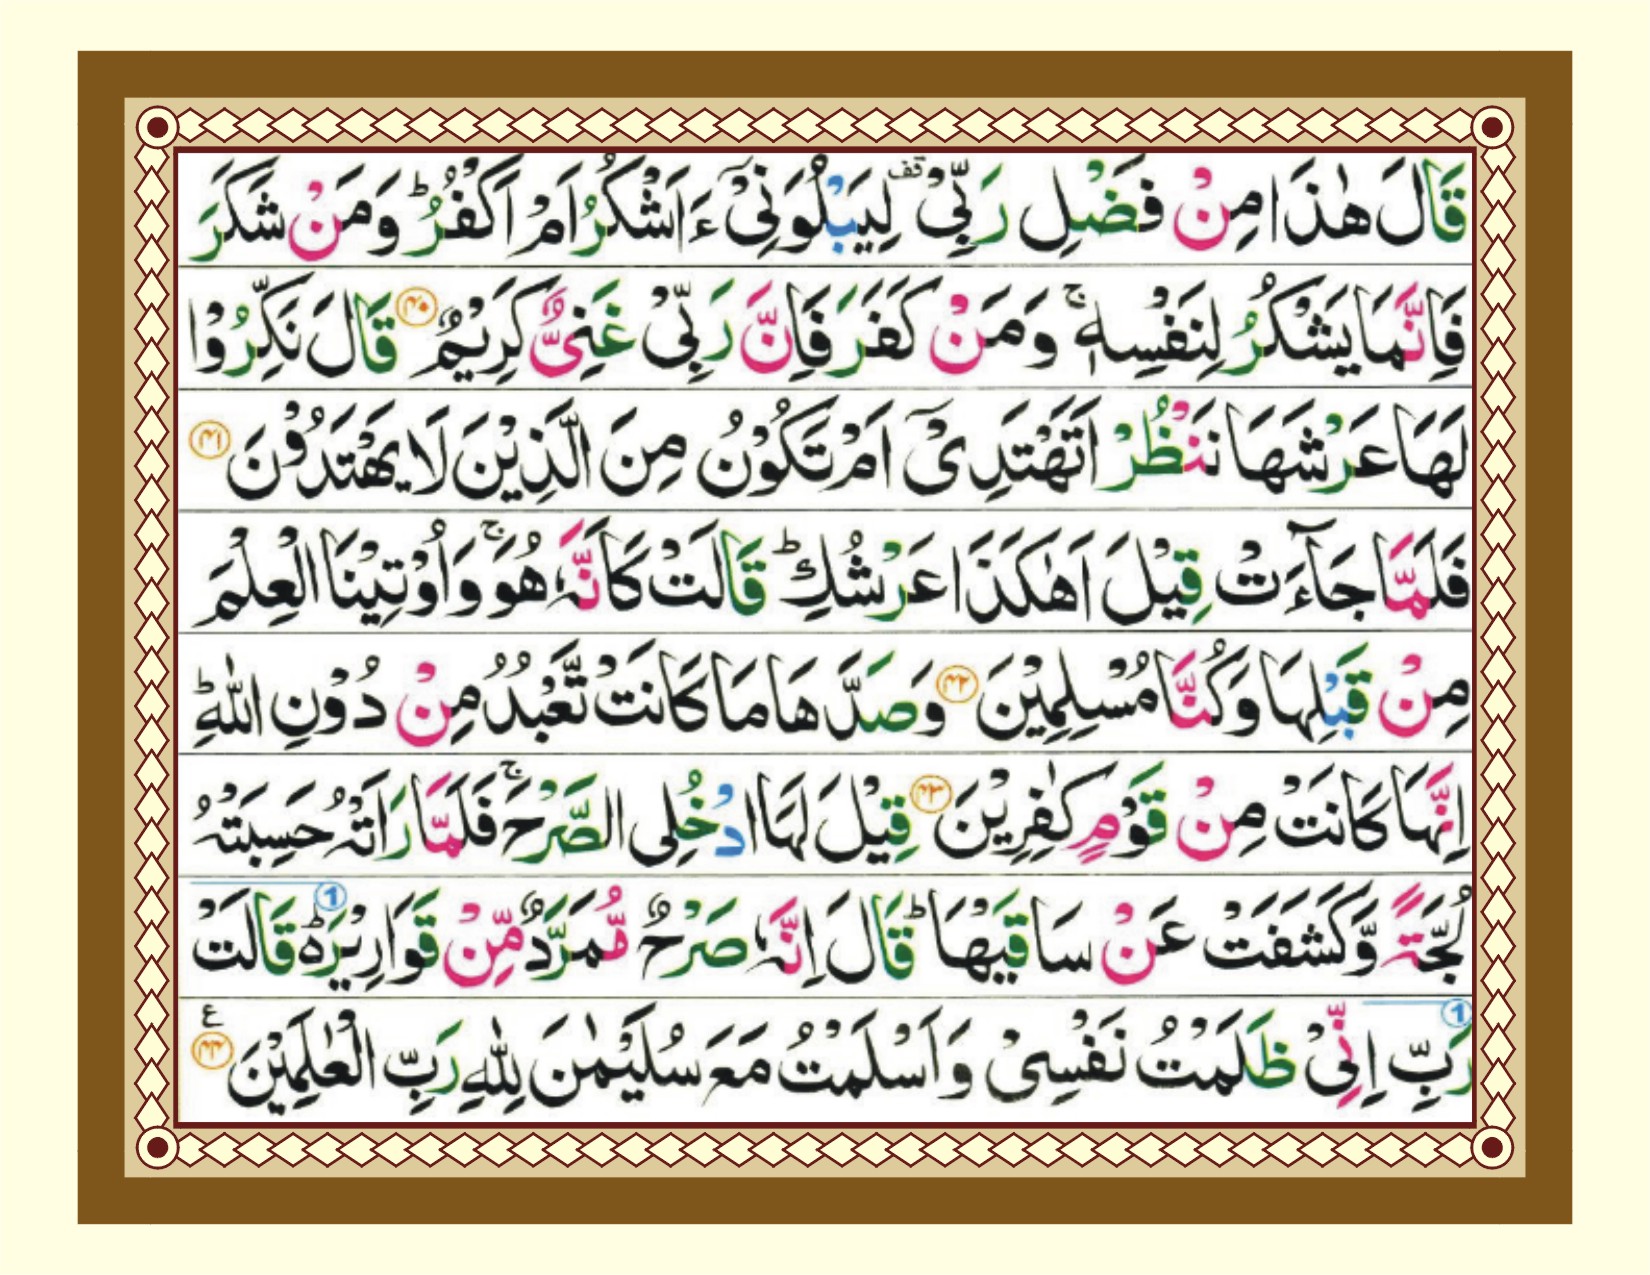 قَالَ هٰذَا مِنْ فَضْلِ رَبِّیْ ۟قف لِیَبْلُوَنِیْۤ ءَاَشْكُرُ اَمْ اَكْفُرُ ؕ وَمَنْ شَكَرَ
فَاِنَّمَا یَشْكُرُ لِنَفْسِهٖ ۚ وَمَنْ كَفَرَ فَاِنَّ رَبِّیْ غَنِیٌّ كَرِیْمٌ ۴۰ قَالَ نَكِّرُوْا
لَهَا عَرْشَهَا نَنْظُرْ اَتَهْتَدِیْۤ اَمْ تَكُوْنُ مِنَ الَّذِیْنَ لَا یَهْتَدُوْنَ ۴۱
فَلَمَّا جَآءَتْ قِیْلَ اَهٰكَذَا عَرْشُكِ ؕ قَالَتْ كَاَنَّهٗ هُوَ ۚ وَاُوْتِیْنَا الْعِلْمَ
مِنْ قَبْلِهَا وَكُنَّا مُسْلِمِیْنَ ۴۲ وَصَدَّهَا مَا كَانَتْ تَّعْبُدُ مِنْ دُوْنِ اللّٰهِ ؕ
اِنَّهَا كَانَتْ مِنْ قَوْمٍ كٰفِرِیْنَ ۴۳ قِیْلَ لَهَا ادْخُلِی الصَّرْحَ ۚ فَلَمَّا رَاَتْهُ حَسِبَتْهُ
لُجَّةً وَّكَشَفَتْ عَنْ سَاقَیْهَا ؕ قَالَ اِنَّهٗ صَرْحٌ مُّمَرَّدٌ مِّنْ قَوَارِیْرَ ۬ؕ 1 قَالَتْ
1 رَبِّ اِنِّیْ ظَلَمْتُ نَفْسِیْ وَاَسْلَمْتُ مَعَ سُلَیْمٰنَ لِلّٰهِ رَبِّ الْعٰلَمِیْنَ ۴۴ ع